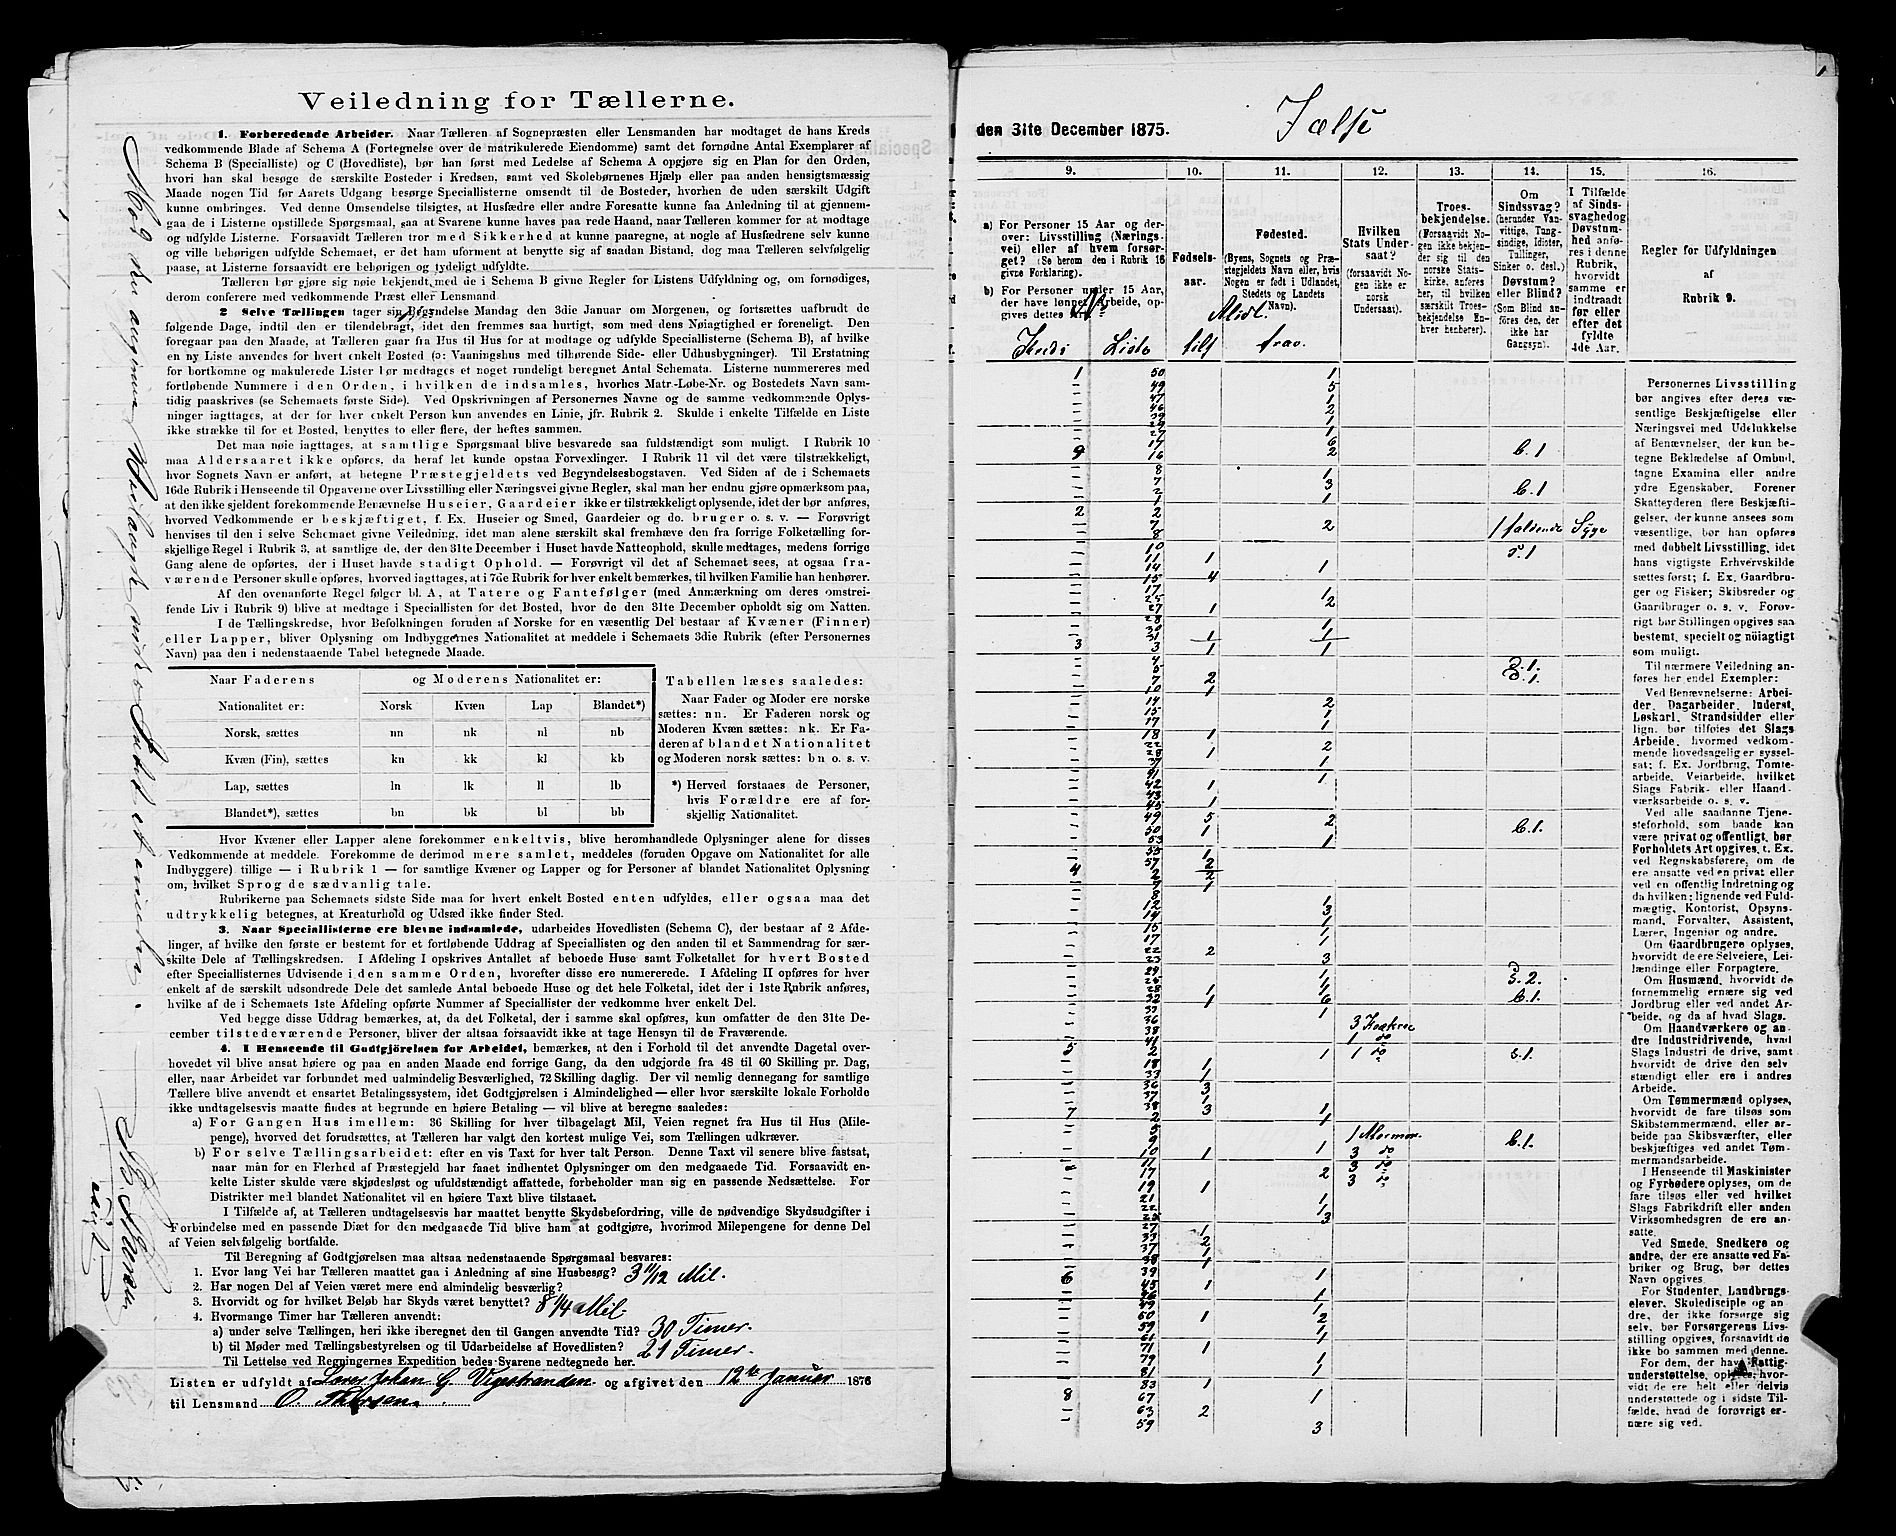 Veiledning for Tællerne.
1. Forberedende Arbeider. Naar Tælleren af Sognepræsten eller Lensmanden har modtaget de hans Kreds
vedkommende Blade af Schema A (Fortegnelse over de matrikulerede Eiendomme) samt det fornødne Antal Exemplarer af
Schema B (Specialliste) og C (Hovedliste), bør han først med Ledelse af Schema A opgjøre sig en Plan for den Orden,
hvori han skal besøge de særskilte Bosteder i Kredsen, samt ved Skolebørnenes Hjælp eller paa anden hensigtsmæssig
Maade nogen Tid før Aarets Udgang besørge Speciallisterne omsendt til de Bosteder, hvorhen de uden særskilt Udgift
kunne ombringes. Ved denne Omsendelse tilsigtes, at Husfædre eller andre Foresatte kunne faa Anledning til at gjennem-
gaa de i Listerne opstillede Spørgsmaal, saa at Svarene kunne haves paa rede Haand, naar Tælleren kommer for at modtage
og udfylde Listerne. Forsaavidt Tælleren tror med Sikkerhed at kunne paaregne, at nogle af Husfædrene selv kunne
og ville behørigen udfylde Schemaet, er det ham uforment at benytte sig af saadan Bistand, dog maa Tælleren selvfølgelig
paase, at Listerne forsaavidt ere behørigen og tydeligt udfyldte.
Tælleren bør gjøre sig nøie bekjendt med de i Schema B givne Regler for Listens Udfyldning og, om fornødiges,
derom conferere med vedkommende Præst eller Lensmand.
2 Selve Tællingen tager sin Begyndelse Mandag den 3die Januar om Morgenen, og fortsættes uafbrudt de
følgende Dage, indtil den er tilendebragt, idet den fremmes saa hurtigt, som med dens Nøiagtighed er foreneligt. Den
foregaar paa den Maade, at Tælleren gaar fra Hus til Hus for at modtage og udfylde Speciallisterne (Schema B), af hvilke
en ny Liste anvendes for hvert enkelt Bosted (ɔ: Vaaningshus med tilhørende Side- eller Udhusbygninger). Til Erstatning
for bortkomne og makulerede Lister bør medtages et noget rundeligt beregnet Antal Schemata. Listerne nummereres med
fortløbende Nummere i den Orden, i hvilken de indsamles, hvorhos Matr.-Løbe-Nr. og Bostedets Navn sam-
tidig paaskrives (se Schemaets første Side). Ved Opskrivningen af Personernes Navne og de samme vedkommende Oplys-
ninger iagttages, at der for hver enkelt Person kun anvendes en Linie, jfr. Rubrik 2. Skulde i enkelte Tilfælde en Liste
ikke strække til for et Bosted, benyttes to eller flere, der heftes sammen.
Det maa nøie iagttages, at samtlige Spørgsmaal blive besvarede saa fuldstændigt som muligt. I Rubrik 10
maa Aldersaaret ikke opføres, da heraf let kunde opstaa Forvexlinger. I Rubrik 11 vil det være tilstrækkeligt,
hvor Sognets Navn er anført, at betegne Præstegjeldets ved Begyndelsesbogstaven. Ved Siden af de i Schemaets
16de Rubrik i Henseende til Opgaverne over Livsstilling eller Næringsvei givne Regler, skal man her endnu gjøre opmærksom paa,
at den ikke sjeldent forekommende Benævnelse Huseier, Gaardeier ikke er tilstrækkeligt oplysende, idet der bør anføres,
hvorved Vedkommende er beskjæftiget, f. Ex. Huseier og Smed, Gaardeier og do. bruger o. s. v. — Forøvrigt
henvises til den i selve Schemaet givne Veiledning, idet man alene særskilt skal fremhæve den fra forrige Folketælling for-
skjellige Regel i Rubrik 3, at samtlige de, der den 31te December i Huset havde Natteophold, skulle medtages, medens forrige
Gang alene de opførtes, der i Huset havde stadigt Ophold. — Forøvrigt vil det af Schemaet sees, at ogsaa fra-
værende Personer skulle opføres, hvorved iagttages, at i 7de Rubrik for hver enkelt bemærkes, til hvilken Familie han henhører.
Af den ovenanførte Regel følger bl. A, at Tatere og Fantefølger (med Anmærkning om deres omstrei-
fende Liv i Rubrik 9) blive at medtage i Speciallisten for det Bosted, hvor de den 31te December opholdt sig om Natten.
I de Tællingskredse, hvor Befolkningen foruden af Norske for en væsentlig Del bestaar af Kvæner (Finner)
eller Lapper, bliver Oplysning om Indbyggernes Nationalitet at meddele i Schemaets 3die Rubrik (efter Personernes
Navn) paa den i nedenstaaende Tabel betegnede Maade.
Naar Faderens og Moderens Nationalitet er:
Nationalitet er: Norsk Kvæn Lap Blandet*)
Norsk, sættes nn nk nl nb
Kvæn (Fin), sættes kn kk kl kb
Lap, sættes ln lk ll lb
Blandet*), sættes bn bk bl bb
Tabellen læses saaledes:
Naar Fader og Moder ere norske
sættes: nn. Er Faderen norsk og
Moderen Kvæn sættes: nk. Er Fa-
deren af blandet Nationalitet
og Moderen norsk sættes: bn o. s. v.
*) Herved forstaaes de Personer,
hvis Forældre ere af for-
skjellig Nationalitet.
Hvor Kvæner eller Lapper alene forekommer enkeltvis, blive heromhandlede Oplysninger alene for disses
Vedkommende at meddele. Forekomme de derimod mere samlet, meddeles (foruden Opgave om Nationalitet for alle
Indbyggere) tillige — i Rubrik 1 — for samtlige Kvæner og Lapper og for Personer af blandet Nationalitet Oplysning
om, hvilket Sprog de sædvanlig tale.
Rubrikerne paa Schemaets sidste Side maa for hvert enkelt Bosted enten udfyldes, eller ogsaa maa det
udtrykkelig betegnes, at Kreaturhold og Udsæd ikke finder Sted.
3. Naar Speciallisterne ere blevne indsamlede, udarbeides Hovedlisten (Schema C), der bestaar af 2 Afde-
linger, af hvilke den første er bestemt for et fortløbende Uddrag af Speciallisten og den anden til et Sammendrag for sær-
skilte Dele af Tællingskredsen. I Afdeling I opskrives Antallet af beboede Huse samt Folketallet for hvert Bosted
efter Speciallisternes Udvisende i den samme Orden, hvorefter disse ere numererede. I Afdeling II opføres for hver
enkelt af de særskilt udsondrede Dele det samlede Antal beboede Huse og det hele Folketal, idet der i 1ste Rubrik anføres,
hvilke af de i Schemaets 1ste Afdeling opførte Nummer af Speciallister der vedkomme hver enkelt Del.
Ved begge disse Uddrag bemærkes, at, da det Folketal, der i samme skal opføres, kun omfatter de den 31te De-
cember tilstedeværende Personer, bliver der altsaa forsaavidt ikke at tage Hensyn til de Fraværende.
4. I Henseende til Godtgjörelsen for Arbeidet, bemærkes, at den i Forhold til det anvendte Dagetal over-
hovedet vil blive ansat høiere og paa en anden Maade end forrige Gang, da den udgjorde fra 48 til 60 Skilling pr. Dag,
eller, naar Arbeidet var forbundet med ualmindelig Besværlighed, 72 Skilling daglig. Der vil nemlig dennegang for samtlige
Tællere blive anvendt et ensartet Betalingssystem, idet Godtgjørelsen i Almindelighed — eller hvor særskilte lokale Forholde
ikke undtagelsesvis maatte findes at begrunde en høiere Betaling — vil blive at beregne saaledes:
a) For Gangen Hus imellem: 36 Skilling for hver tilbagelagt Mil, Veien regnet fra Hus til Hus (Mile-
penge), hvorved det forudsættes, at Tælleren har valgt den kortest mulige Vei, som Tællingen udkræver.
b) For selve Tællingsarbeidet: efter en vis Taxt for hver talt Person. Denne Taxt vil senere blive fastsat,
naar man for en Flerhed af Præstegjeld har faaet indhentet Oplysninger om den medgaaede Tid. Forsaavidt en-
kelte Lister skulde være skjødesløst og ufuldstændigt affattede, forbeholder man sig en passende Nedsættelse. For
Distrikter med blandet Nationalitet vil en høiere Taxt blive tilstaaet.
I Tilfælde af, at Tælleren undtagelsesvis har maattet benytte Skydsbefordring, ville de nødvendige Skydsudgifter i
Forbindelse med en passende Diæt for den medgaaede Tid blive ham at godtgjøre, hvorimod Milepengene for denne Del
af Veien selvfølgelig bortfalde.
Til Beregning af Godtgjørelsen maa altsaa nedenstaaende Spørgsmaal besvares:
1. Hvor lang Vei har Tælleren maattet gaa i Anledning af sine Husbesøg? 3 11/12 Mil.
2. Har nogen Del af Veien været mere end almindelig besværlig?
3. Hvorvidt og for hvilket Beløb har Skyds været benyttet? 8 1/4 Mil.
4. Hvormange Timer har Tælleren anvendt:
a) under selve Tællingen, heri ikke iberegnet den til Gangen anvendte Tid? 30 Timer.
b) til Møder med Tællingsbestyrelsen og til Udarbeidelse af Hovedlisten? 21 Timer.
Til Lettelse ved Regningernes Expedition bedes Svarene nedtegnede her.
Listen er udfyldt af Johan G. Vigestranden og afgivet den 12te Januar 1876
til Lensmand O. Thorsen.
den 31te December 1875. Jælse
9. 10. 11. 12. 13. 14. 15. 16.
a) For Personer 15 Aar og der-
over: Livsstilling (Nærings-
vei) eller af hvem forsør-
get? (Se herom den i Rubrik 16
givne Forklaring).
b) For Personer under 15 Aar,
der have lønnet Arbeide, op-
gives dettes
Fødsels-
aar.
Fødested.
(Byens, Sognets og Præ-
stegjeldets Navn eller, hvis
Nogen er født i Udlandet,
Stedets og Landets
Navn).
Hvilken
Stats Under-
saat?
(forsaavidt No-
gen ikke er
norsk
Undersaat).
Troes-
bekjendelse.
(Forsaavidt No-
gen ikke bekjen-
der sig til den
norske Stats-
kirke, anføres
her, til hvilken
særskilt Troes-
bekjendelse En-
hver henhører).
Om
Sindssvag?
(herunder Van-
vittige, Tung-
sindige, Idioter,
Tullinger,
Sinker o. desl.)
Døvstum?
eller Blind?
(Som Blind an-
føres den, der
ikke har
Gangsyn).
I Tilfælde
af Sinds-
svaghed og
Døvstum-
hed anfø-
res i denne
Rubrik,
hvorvidt
samme er
indtraadt
før eller
efter det
fyldte
4de Aar.
Regler for Udfyldningen
af
Rubrik 9.
Kreds Liste tilst frav.
1 50 1
49 5
47 1
46 2
17 6
9 16 2 b.1
8 1
7 3
2 b.1
1 1
2 2
7 2 1 faldende Syge
8
10 d.1
11 1
14 1
15 4
17
25 1
27 1 2
28
30 1
31 1 1
3 3 1 1
4
5 d.1.
7 2 d.1.
10 1
14 2
15 1
17 1
18 1
22 2
28 1
37 1
41 1
42 1
43
45 1
49 5 2
50 1 b.1.
53 1
55 1
57 2
4 2 2
7 1
8
12 1
14 3
15 1
17 1
22 2
23 3
32 1 6 b.1.
37 1
36 3 Kvækere
38 1 do
41 1 do
5 2 1 s.1.
18 1
33 1
36 3
37 1
38 3 1
7 2 1
5
9 1 Mormon. b.1.
10 1 1 3 do
11 3 do
17 2 3 do
19 1
21 1
22 1
3
27 1
33 2
37 1
38 1
6 39 1
45 1
49 1
50 1 2
59 1
61 1
71 1
79 1
81 1
83 1
8 67 1
63 2
59 3
Personernes Livsstilling
bør angives efter deres væ-
sentlige Beskjæftigelse eller
Næringsvei med Udelukkelse
af Benævnelser, der kun be-
tegne Beklædelse af Ombud,
tagne Examina eller andre
ydre Egenskaber. Forener
Skatteyderen flere Beskjæfti-
gelser, der kunne ansees som
væsentlige, bør han opføres
med dobbelt Livsstilling, idet
hans vigtigste Erhvervskilde
sættes først; f. Ex. Gaardbru-
ger og Fisker; Skibsreder og
Gaardbruger o. s. v. Forøv-
rigt bør Stillingen opgives saa
bestemt, specielt og nöiagtigt
som muligt.
Til nærmere Veiledning an-
føres her endel Exempler:
Ved Benævnelserne: Arbei-
der, Dagarbeider, Inderst,
Løskarl, Strandsidder eller
lign. bør tilføies det Slags
Arbeide, hvormed vedkom-
mende hovedsagelig er syssel-
sat; f. Ex. Jordbrug, Tomte-
arbeide, Veiarbeide, hvilket
Slags Fabrik- eller Haand-
værksarbeide o. s. v.
Ved alle saadanne Tjene-
steforhold, som baade kan
være privat og offentligt, bør
Forholdets Art opgives, f. Ex.
ved Regnskabsførere, om de
ere ansatte ved en privat eller
ved en offentlig Indretning og
da hvilken; lignende ved Fuld-
mægtig, Kontorist, Opsyns-
mand, Forvalter, Assistent,
Lærer, Ingeniør og andre.
Om Gaardbrugere oplyses,
hvorvidt de ere Selveiere, Lei-
lændinge eller Forpagtere.
Om Husmænd, hvorvidt de
fornemmelig ernære sig ved
Jordbrug eller ved andet Ar-
beide, og da af hvad Slags.
Om Haandværkere og an-
dre Industridrivende, hvad
Slags Industri de drive, samt
hvorvidt de drive den selv
stændigt eller ere i andres
Arbeide.
Om Tømmermænd oplyses,
hvorvidt de fare tilsøs som
Skibstømmermænd, eller ar-
beide paa Skibsværfter, eller
beskjæftiges ved andet Tøm-
mermandsarbeide.
I Henseende til Maskinister
og Fyrbødere oplyses, om de
fare tilsøs eller ved hvilket
Slags Fabrikdrift eller anden
Virksomhedsgren de ere an-
satte.
Ved Smede, Snedkere og
andre, der ere ansatte ved Fa-
briker og Brug, bør dettes
Navn opgives.
For Studenter, Landbrugs-
elever, Skoledisciple og an-
dre, der ikke forsørge sig
selv, bør Forsørgerens Livs-
stilling opgives, forsaavidt de
ikke bo sammen med denne.
For dem, der have Fattig-
understøttelse, oplyses, hvor-
vidt de ere helt eller delvis
understøttede og i sidste Til-
fælde, hvad de forøvrigt er-
nære sig ved.